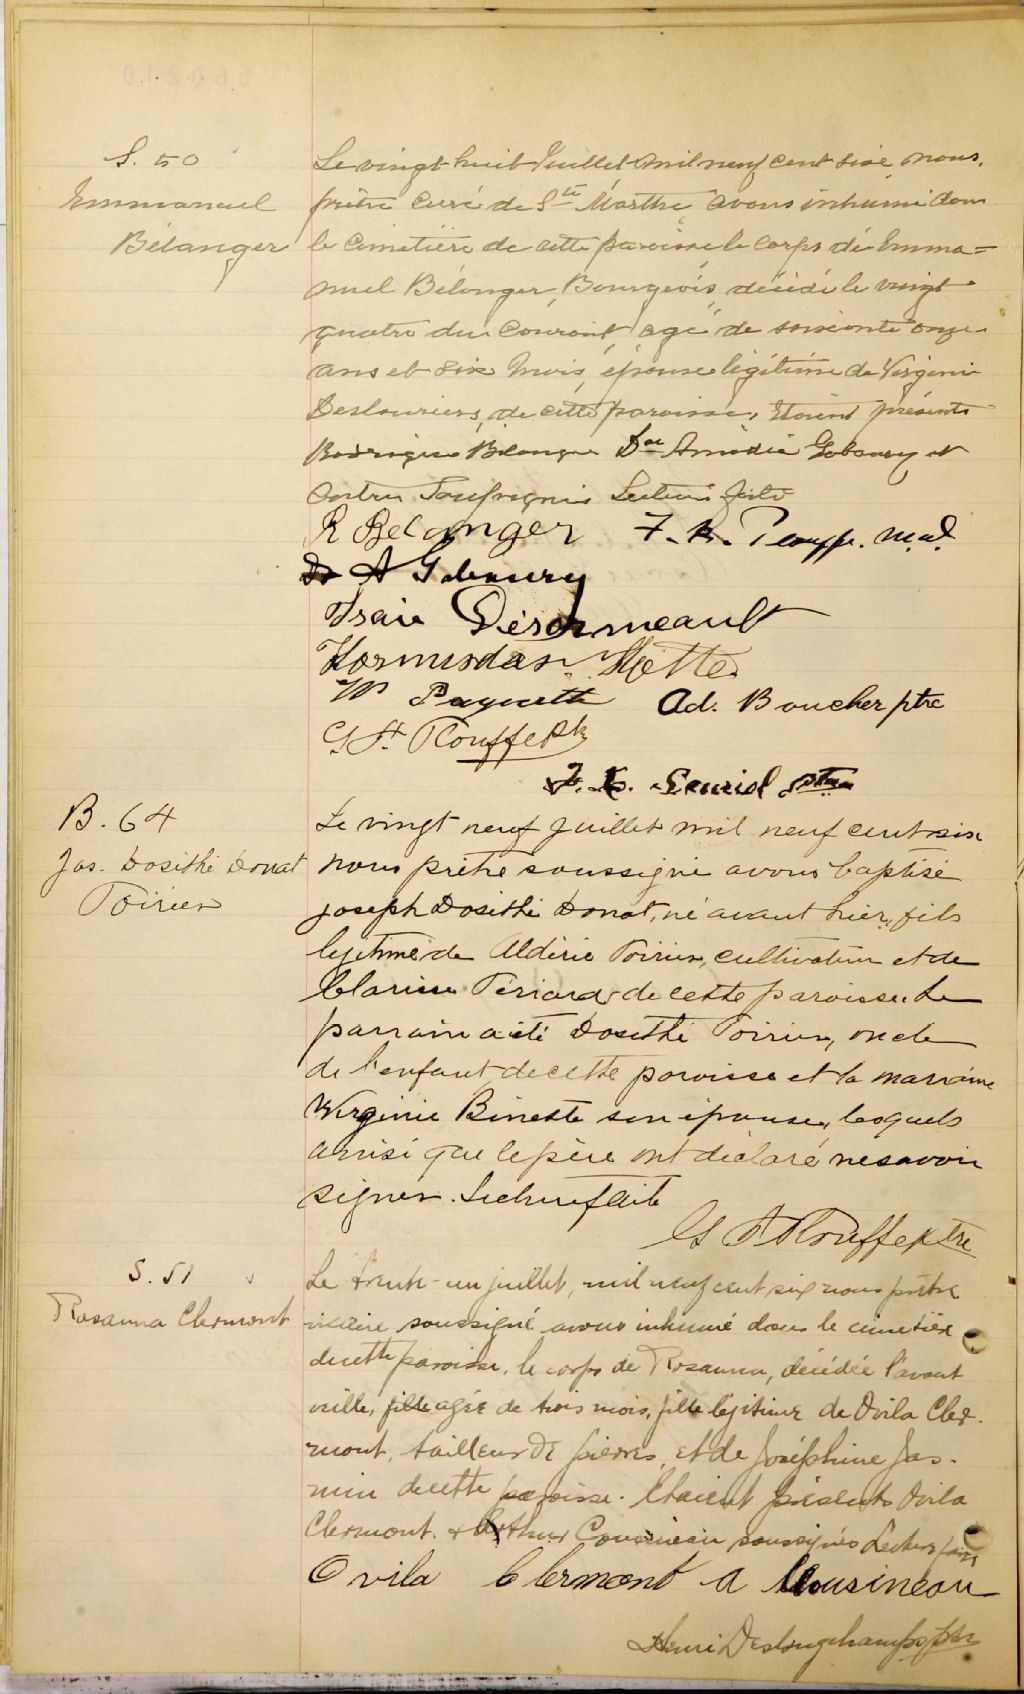 S. 50
Emmanuel
Bélanger
Le vingt huit Juillet mil neuf cent six nous,
prêtre curé de Ste Marthe avons inhumé dans
le cimetière de cette paroisse le corps de Emma=
nuel Bélanger, Bourgeois, décédé le vingt
quatre du courant agé de soixante onze
ans et six mois, époux légitime de Virginie
Deslauriers, de cette paroisse, Etaient présents
Rodrigue Bélanger Dr Amédée
autres soussignés Lecture faite
R Belanger
Isaie Désormeault
Hormisdas
Paquette Ad. Boucher ptre
B. 64
Jos. Dosithé Donat
Poirier
Le vingt neuf juillet mil neuf cent six
nous prêtre soussigné avons baptisé
joseph Dosithé Donat, né avant hier, fils
légitime de Aldéric Poirier, cultivateur et de
Clarisse Périard de cette paroisse. Le
parrain a été Dosithé Poirier, oncle
de l'enfant, de cette paroisse et la marraine
Virginie Binette son épouse, lesquels
ainsi que le père ont déclaré ne savoir
signer. Lecture faite
S. 51
Rosanna Clermont
Le trente-un juillet, mil neuf cent six nous prêtre
vicaire soussigné avons inhumé dans le cimetière
de cette paroisse, le corps de Rosanna, décédée l'avant
veille, fille agée de trois mois, fille légitime de Ovila Cler-
mont, tailleur de pierres, et de Joséphine Jas-
min de cette paroisse. Etaient présents Ovila
Clermont & Arthur Cousineau soussignés Lecture faite
Ovila Clermont A Cousineau
Henri Deslongchamps ptre